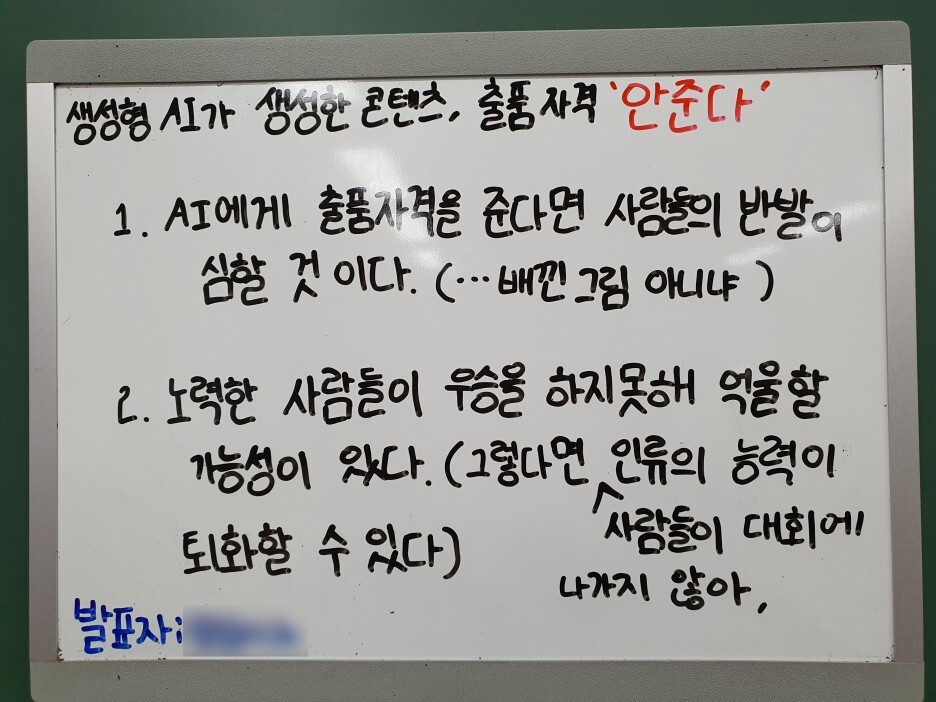 생성형 AI가 생성한 콘텐츠, 출품 자격 '안준다'
1. AI에게 출품자격을 준다면 사람들의 반발이
심할 것 이다. (…배낀그림 아니냐)
2. 노력한 사람들이 우승을 하지못해 억울할
가능성이 있다. (그렇다면 ^ 인류의 능력이
사람들이 대회에
나가지 않아,
퇴화할 수 있다)
발표자: